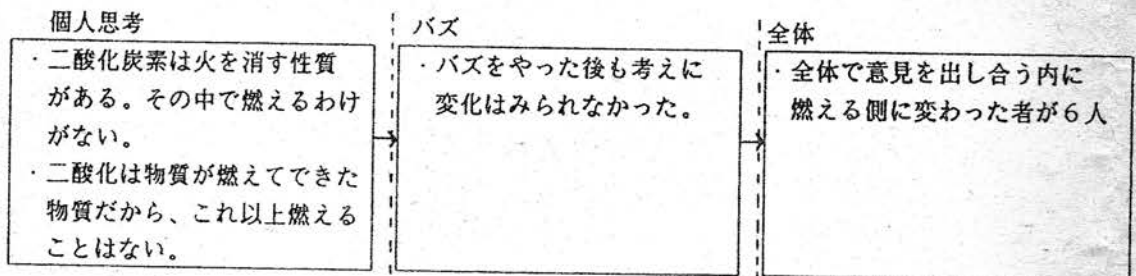 個人思考
・二酸化炭素は火を消す性質
がある。その中で燃えるわけ
がない。
・二酸化は物質が燃えてできた
物質だから、これ以上燃える
ことはない。
バズ
・バズをやった後も考えに
変化はみられなかった。
全体
・全体で意見を出し合う内に
燃える側に変わった者が6人